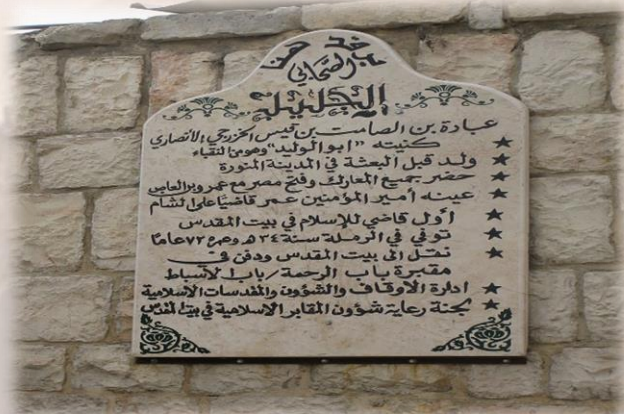 يرقد هنا
الصحابي
الجليل
عبادة بن الصامت بن قيس الخزرجي الانصاري
★ كنيته "ابو الوليد" وهو من النقباء
★ ولد قبل البعثة في المدينة المنورة
★ حضر جميع المعارك وفتح مصر مع عمرو بن العاص
★ عينه أمير المؤمنين عمر قاضيًا على الشام
★ أول قاضي للإسلام في بيت المقدس
★ توفي في الرملة سنة ٣٤ هـ وعمره ٧٢ عامًا
★ نقل الى بيت المقدس ودفن في
مقبرة باب الرحمة / باب الأسباط
★ ادارة الأوقاف والشؤون والمقدسات الاسلامية
★ لجنة رعاية شؤون المقابر الاسلامية في بيت المقدس